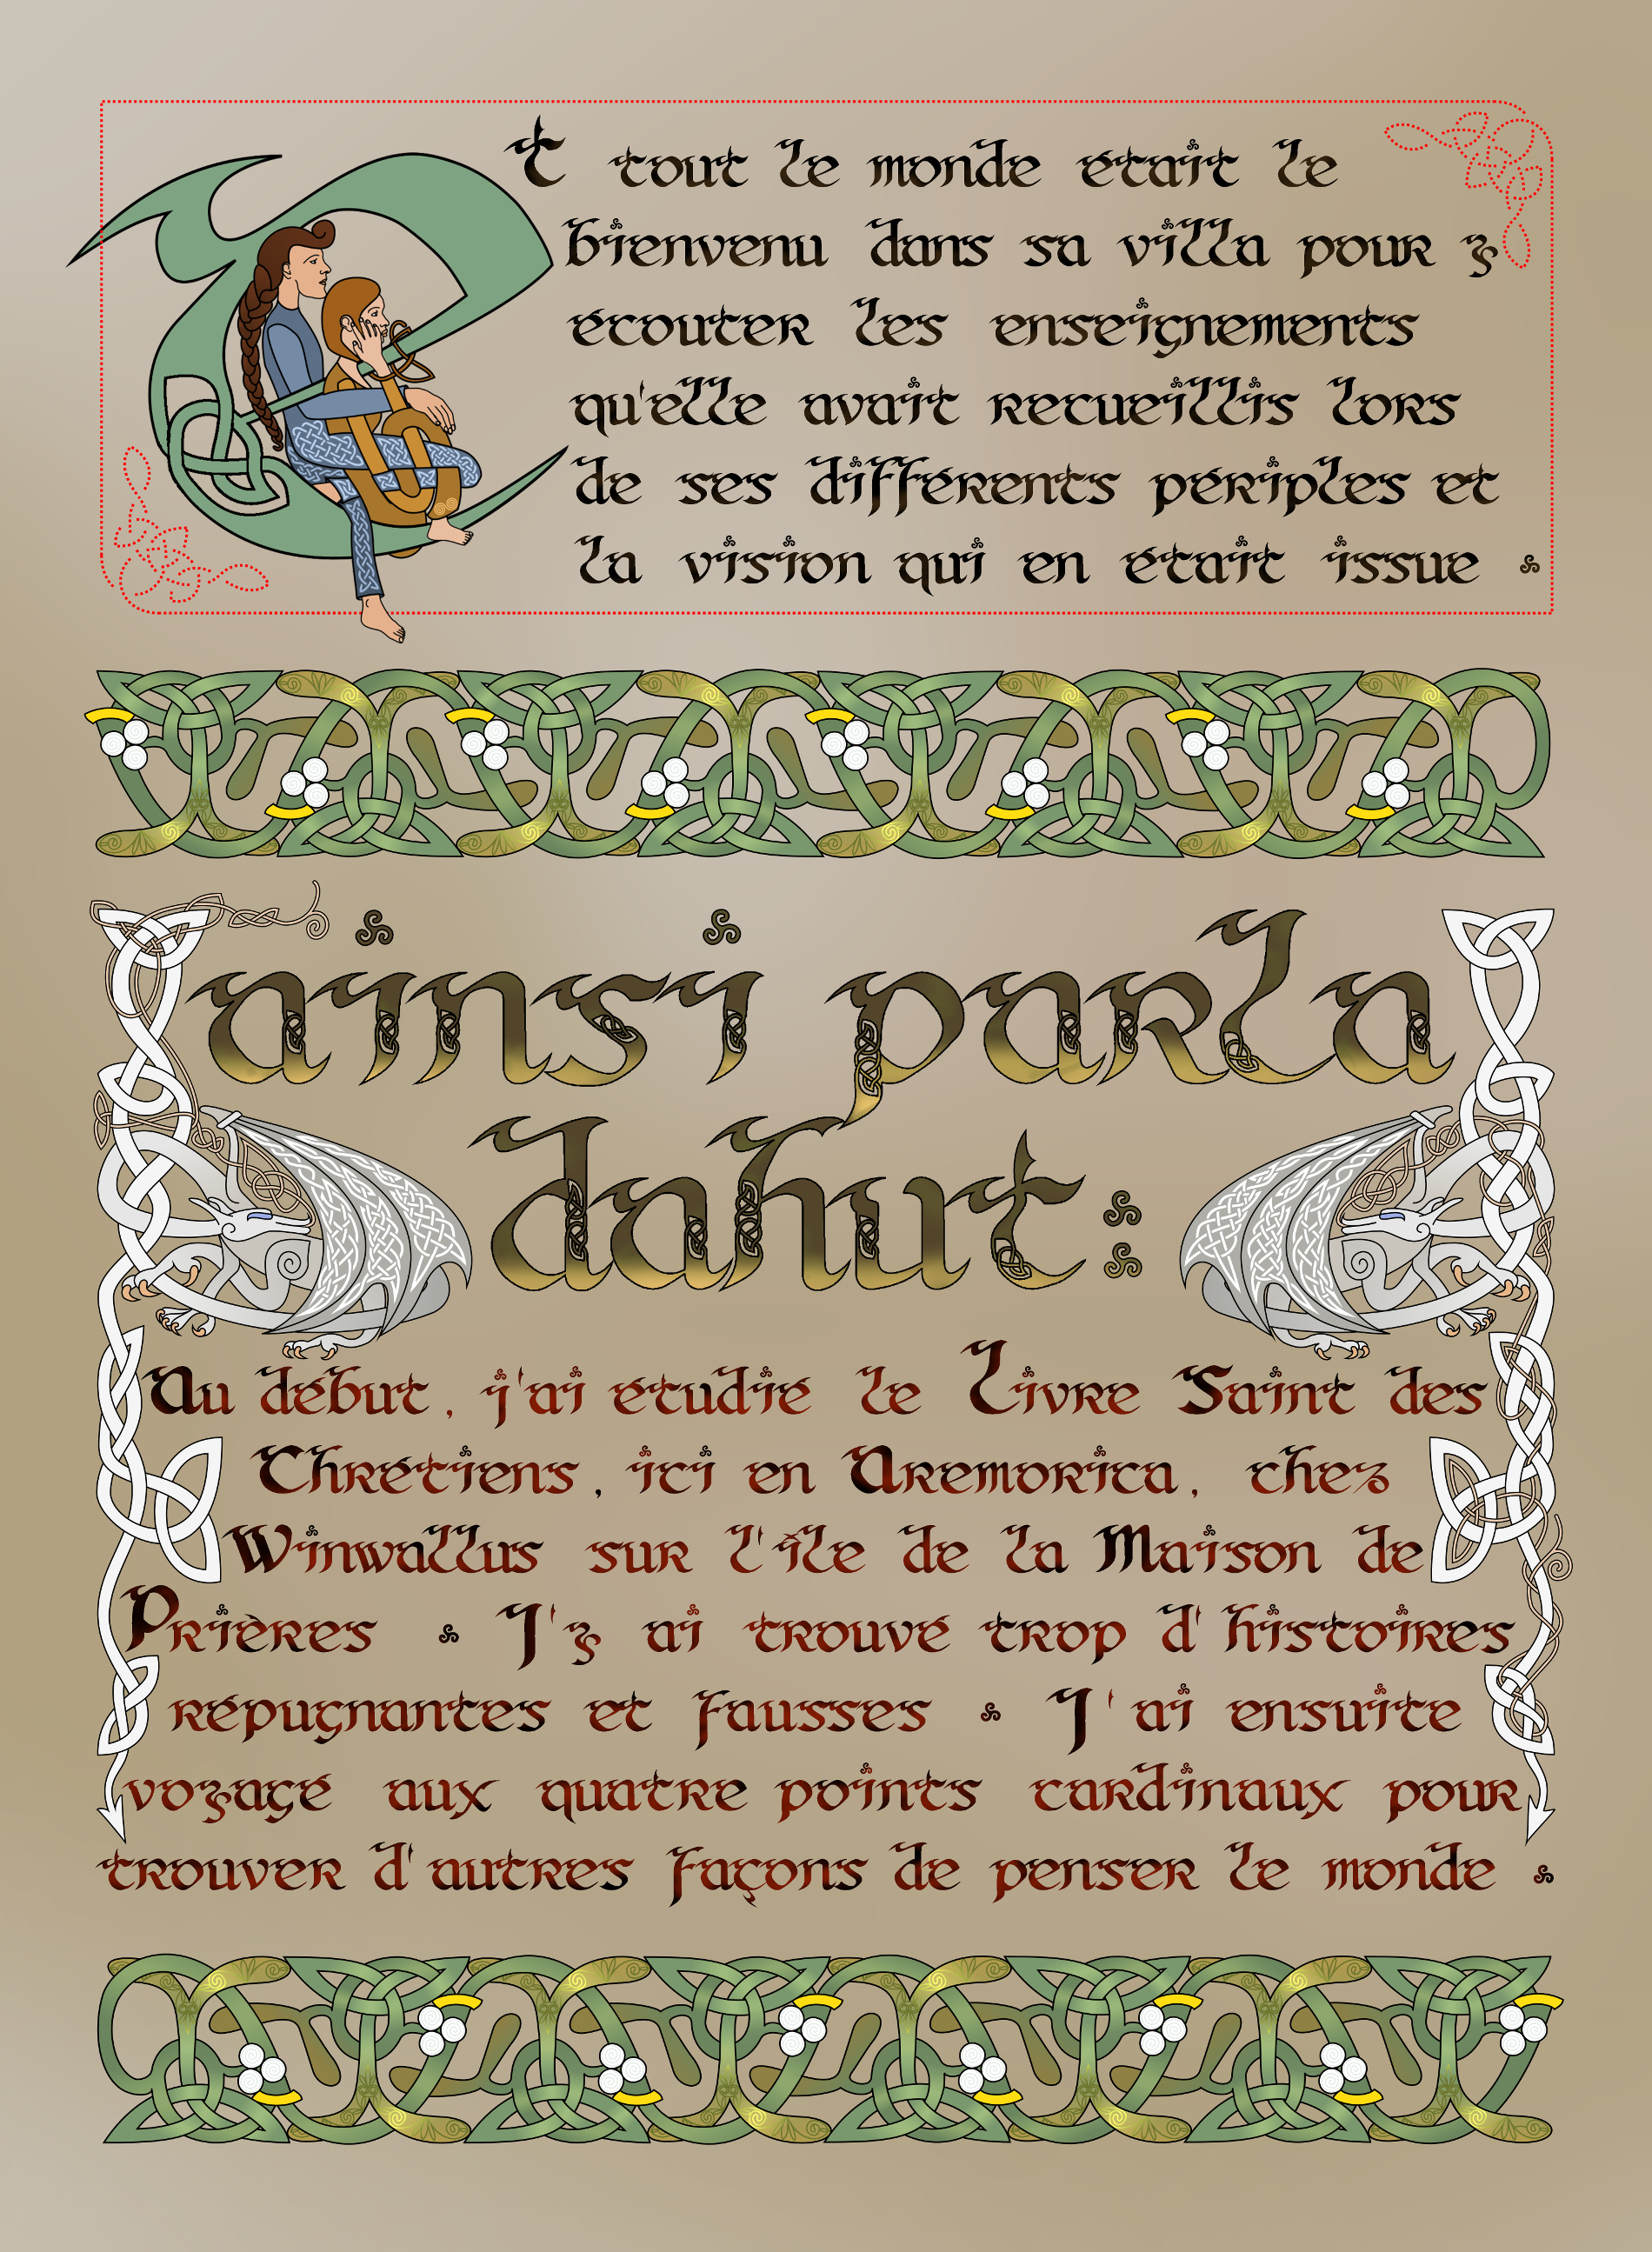 Et tout le monde était le
bienvenu dans sa villa pour y
écouter les enseignements
qu'elle avait recueillis lors
de ses différents périples et
la vision qui en était issue .
ainsi parla
dahut :
Au début, j'ai étudié le Livre Saint des
Chrétiens, ici en Aremorica, chez
Winwallus sur l'île de la Maison de
Prières . J'y ai trouvé trop d'histoires
répugnantes et fausses . J'ai ensuite
voyagé aux quatre points cardinaux pour
trouver d'autres façons de penser le monde .